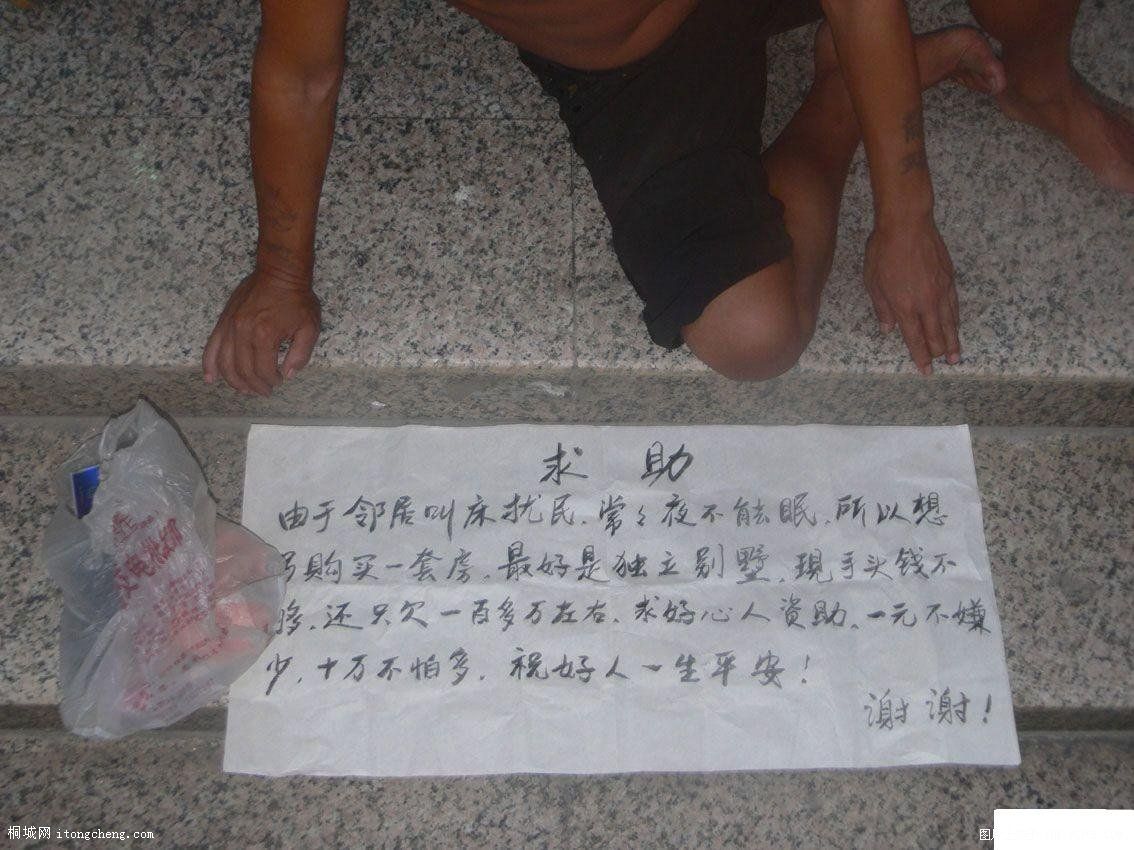 求 助
由于邻居叫床扰民,常々夜不能眠,所以想
另购买一套房,最好是独立别墅,現手头钱不
够,还只欠一百多万左右,求好心人资助,一元不嫌
少,十万不怕多,祝好人一生平安!
谢谢!
桐城网 itongcheng.com
图